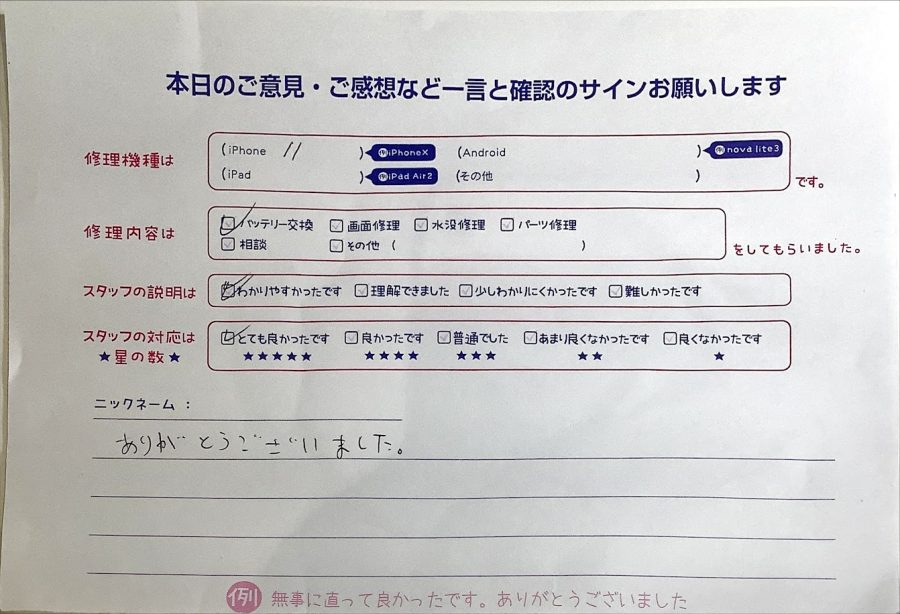 本日のご意見・ご感想など一言と確認のサインお願いします
修理機種は
(iPhone 11 ) 例iPhoneX (Android ) 例nova lite3
(iPad ) 例iPad Air2 (その他 ) です。
修理内容は
バッテリー交換 画面修理 水没修理 パーツ修理
相談 その他 ( ) をしてもらいました。
スタッフの説明は わかりやすかったです 理解できました 少しわかりにくかったです 難しかったです
スタッフの対応は とても良かったです 良かったです 普通でした あまり良くなかったです 良くなかったです
★星の数★ ★★★★★ ★★★★ ★★★ ★★ ★
ニックネーム :
ありがとうございました。
例 無事に直って良かったです。ありがとうございました